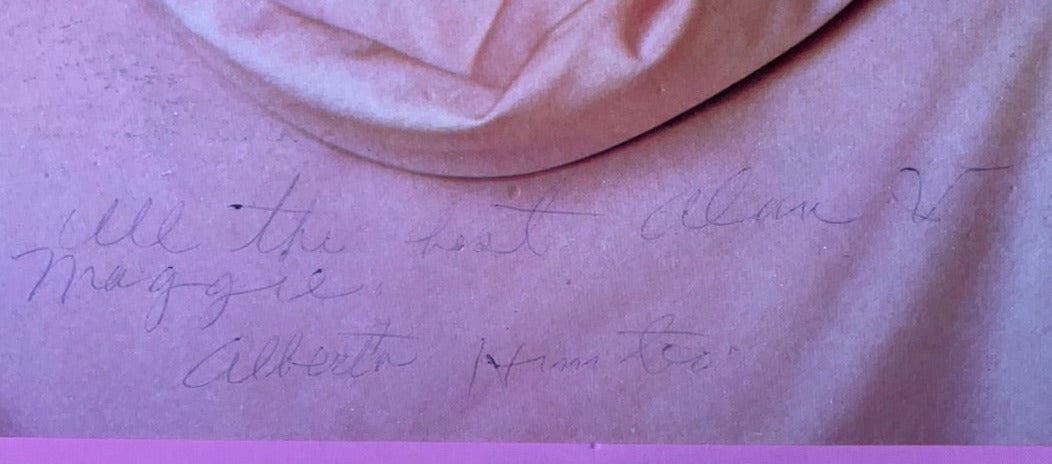 All the best Alan &
Maggie.
Alberta Hunter